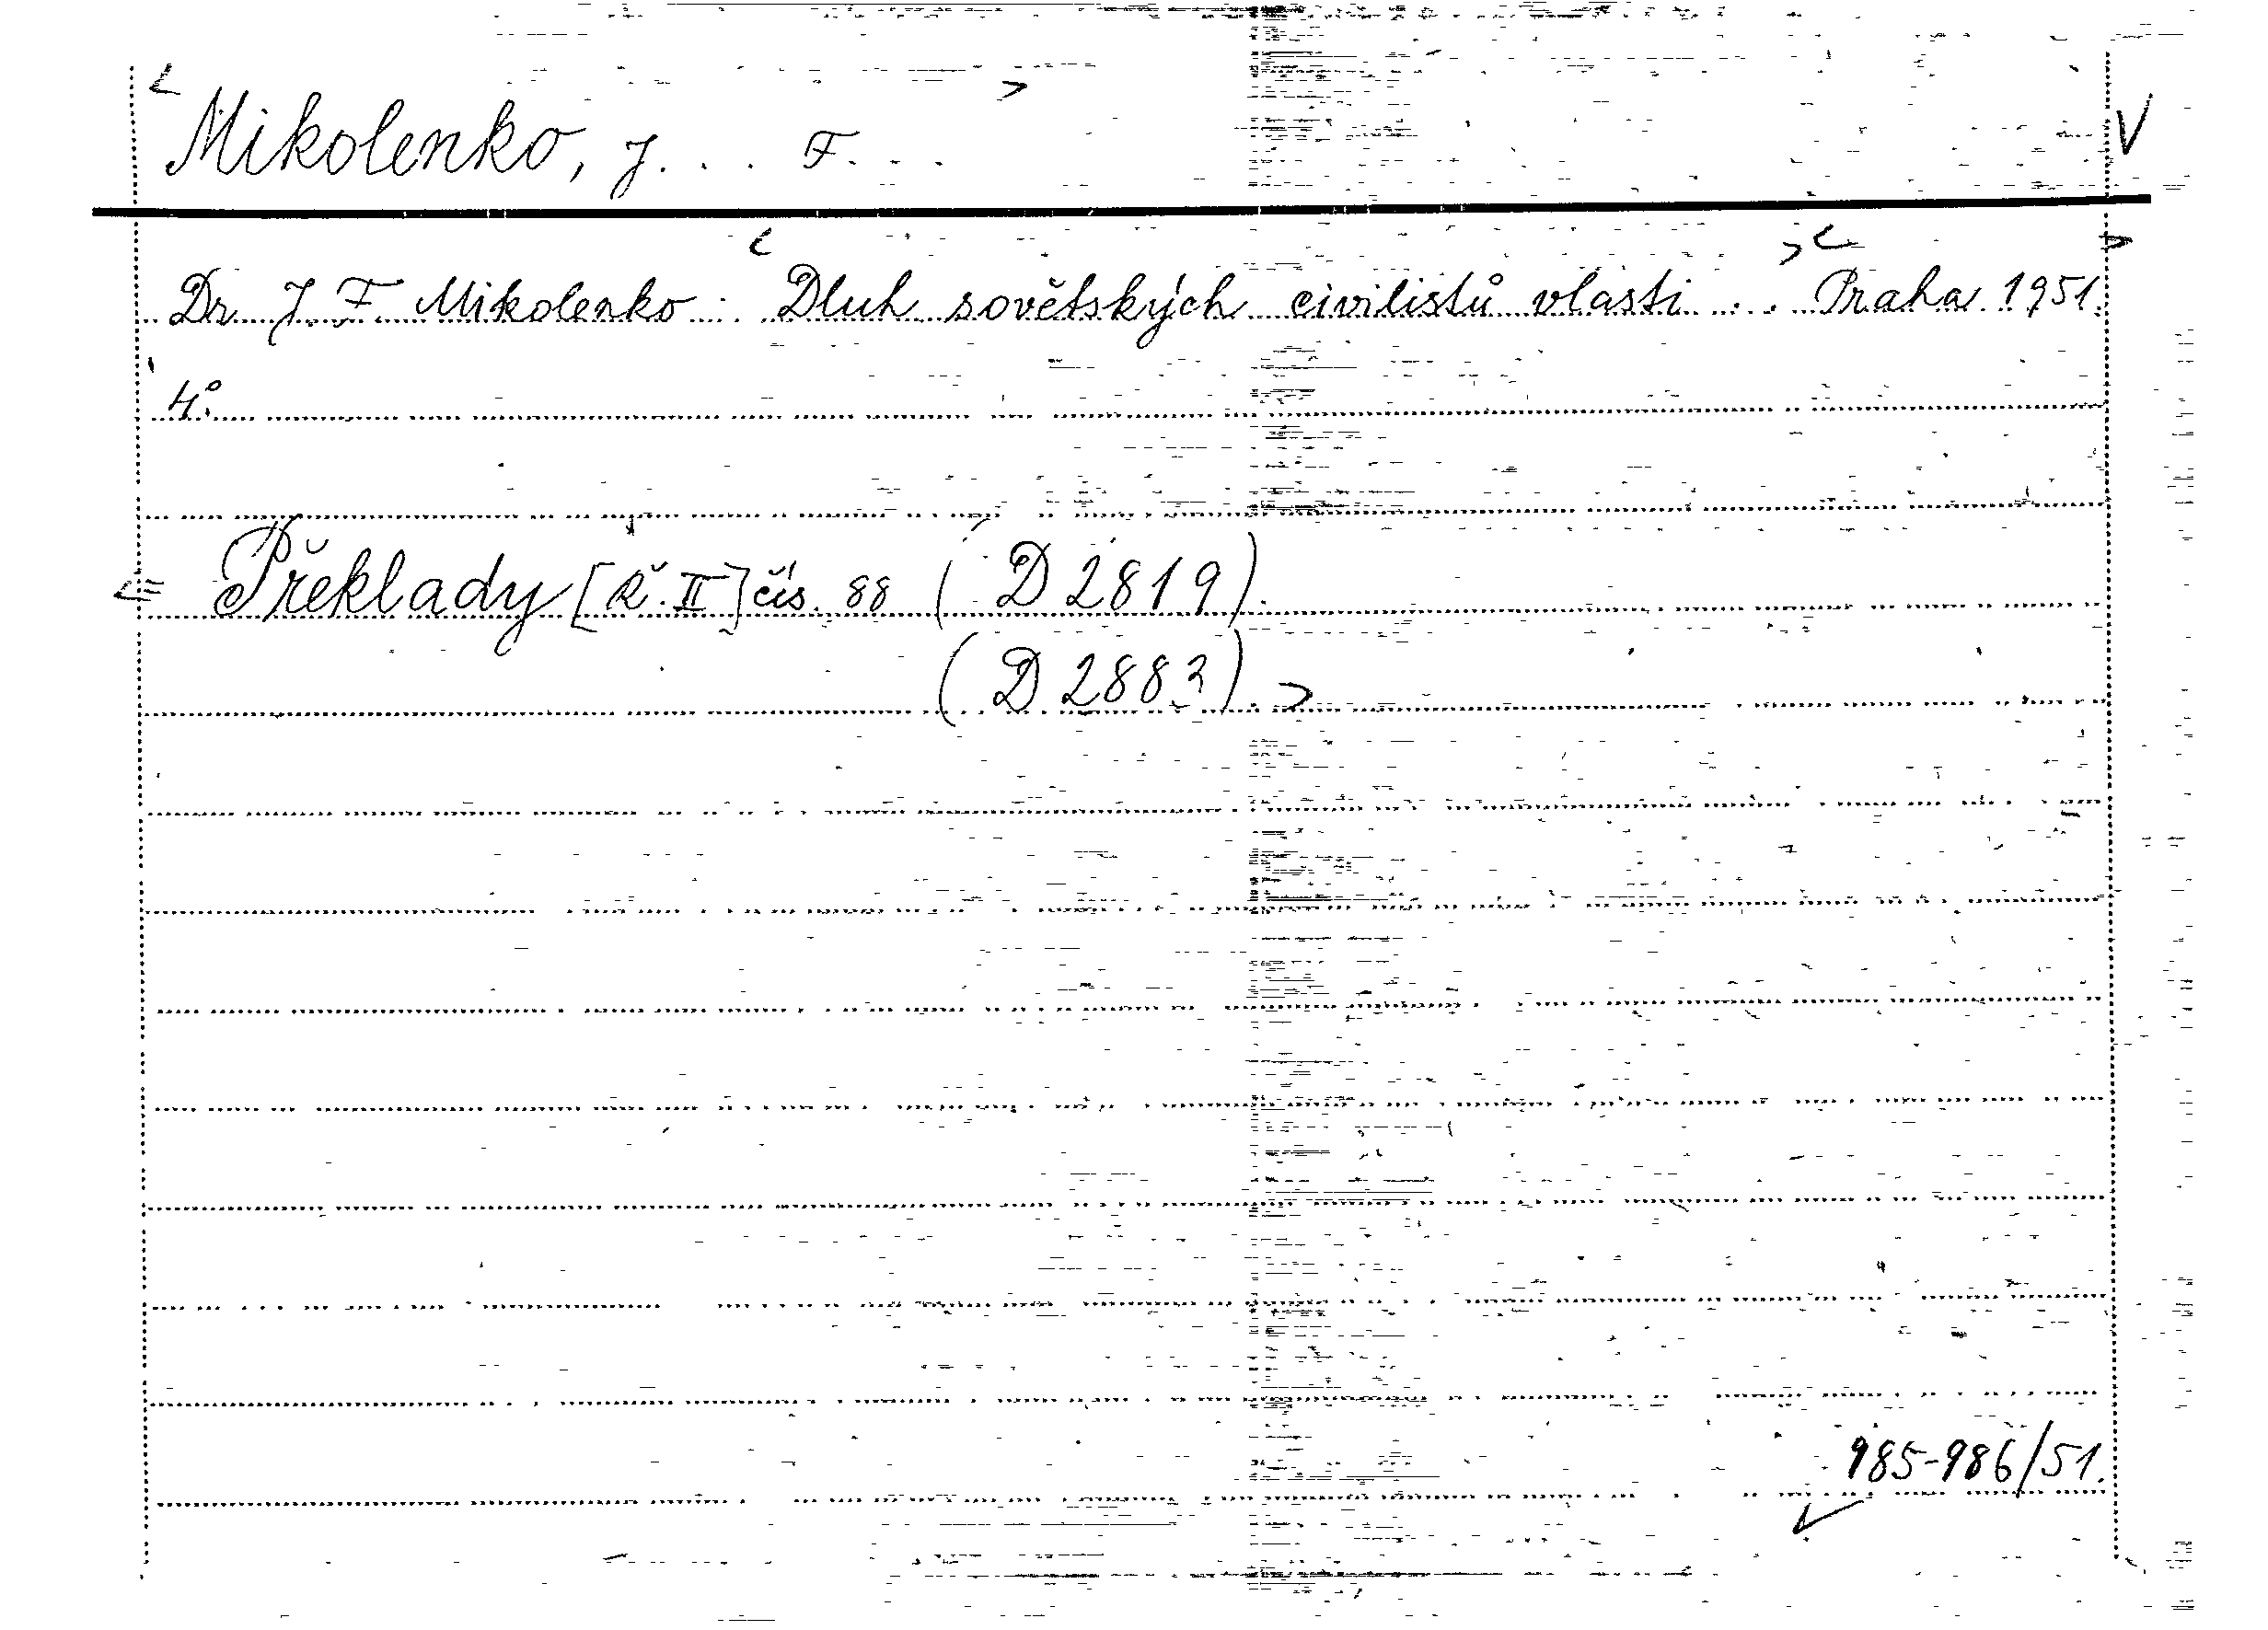 Mikolenko, J. . . F. . .
Dr J. F. Mikolenko: Dluh sovětských civilistů vlasti . . Praha 1951.
4°.
= Překlady [Ř. II] čís. 88 (D 2819).
(D 2883).
985-986/51.